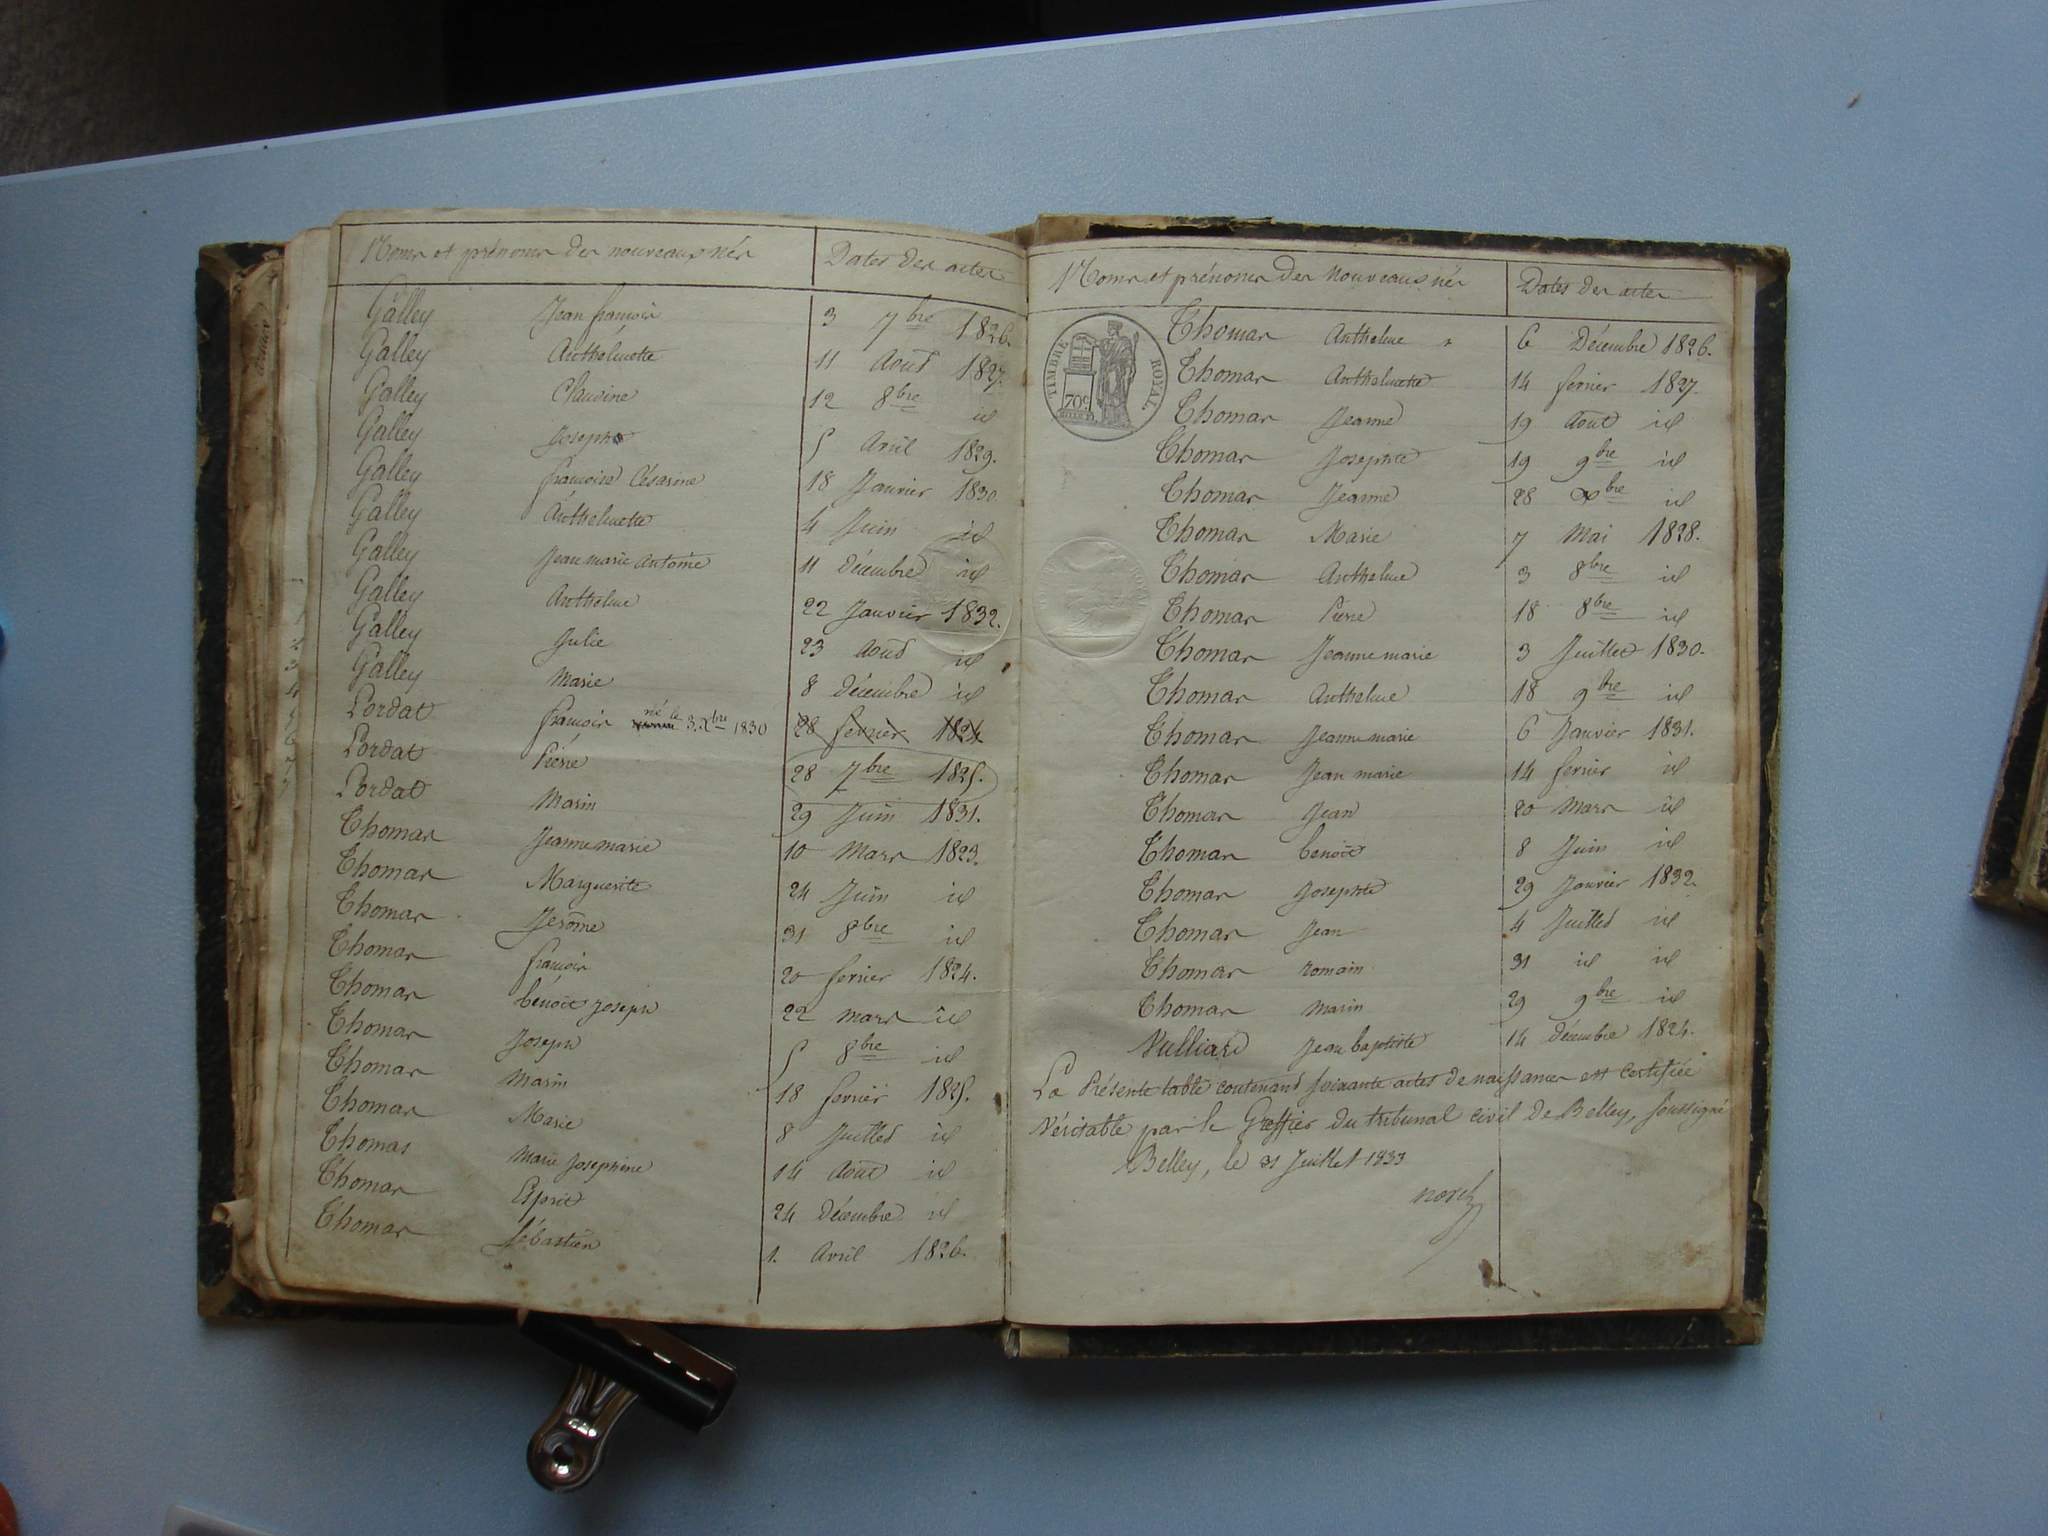 Noms et prénoms des nouveaux nés Dates des actes
Galley Jean françois 3 7bre 1826.
Galley Anthelmette 11 Août 1827.
Galley Claudine 12 8bre id
Galley Joseph 5 Avril 1829.
Galley françoise Césarine 18 Janvier 1830.
Galley Anthelmette 4 Juin id
Galley Jean marie Antoine 11 Décembre id
Galley Anthelme 22 Janvier 1832.
Galley Julie 23 Août id
Galley Marie 8 Décembre id
Pordat françois né le 3. Xbre 1830 28 fevrier 1824
Pordat Pierre 28 7bre 1825.
Pordat Marin 29 Juin 1831.
Thomas Jeanne marie 10 Mars 1823.
Thomas Marguerite 24 Juin id
Thomas Jerôme 31 8bre id
Thomas françois 20 fevrier 1824.
Thomas benoît Joseph 22 mars id
Thomas Joseph 5 8bre id
Thomas Marin 18 fevrier 1825.
Thomas Marie 8 Juillet id
Thomas Marie Josephine 14 Août id
Thomas Esprit 24 Décembre id
Thomas Sébastien 1. Avril 1826.
Noms et prénoms des Nouveaux nés Dates des actes
TIMBRE ROYAL
70c
Thomas Anthelme 6 Décembre 1826.
Thomas Anthelmette 14 fevrier 1827.
Thomas Jeanne 19 Août id
Thomas Josephte 19 9bre id
Thomas Jeanne 28 Xbre id
Thomas Marie 7 Mai 1828.
Thomas Anthelme 3 8bre id
Thomas Pierre 18 8bre id
Thomas Jeanne marie 3 Juillet 1830.
Thomas Anthelme 18 9bre id
Thomas Jeanne marie 6 Janvier 1831.
Thomas Jean marie 14 fevrier id
Thomas Jean 20 Mars id
Thomas benoît 8 Juin id
Thomas Josephte 29 Janvier 1832.
Thomas Jean 4 Juillet id
Thomas romain 31 id id
Thomas Marin 29 9bre id
Vulliard Jean baptiste 14 Décembre 1824.
La Présente table contenant soixante actes de naissances est certifiée
Véritable par le Greffier du tribunal civil de Belley, soussigné
Belley, le 31 Juillet 1833